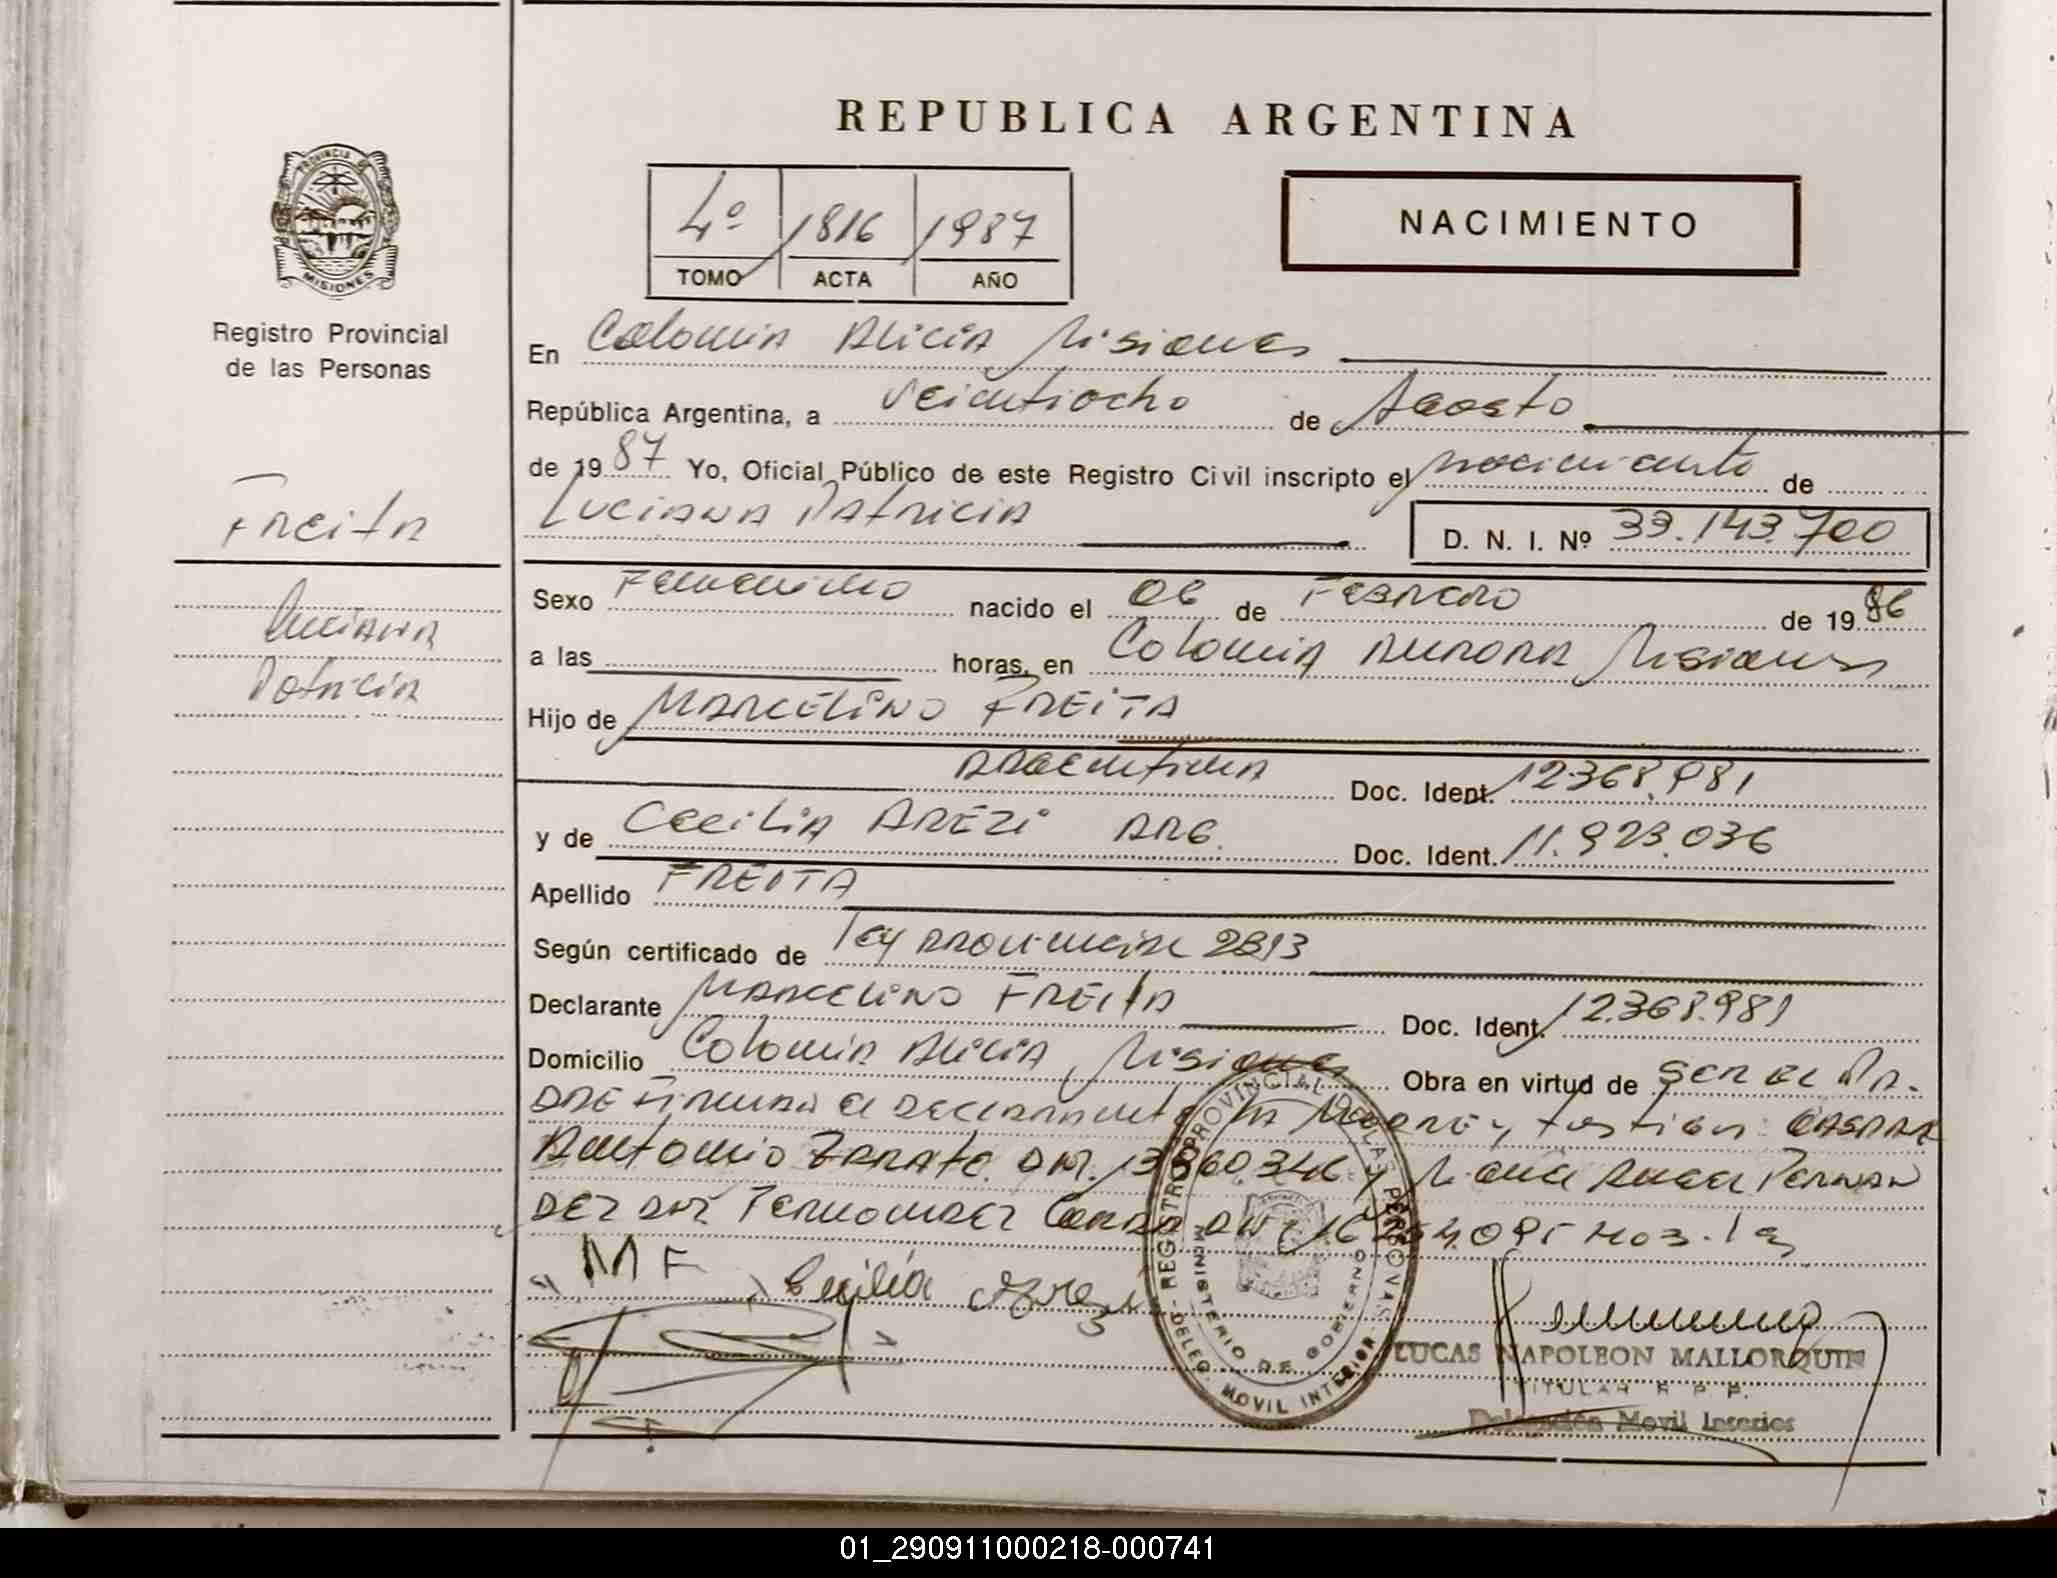 REPUBLICA ARGENTINA
PROVINCIA DE
MISIONES
Registro Provincial
de las Personas
4º 1816 1987
TOMO ACTA AÑO
NACIMIENTO
En Colonia Alicia Misiones
República Argentina, a veintiocho de Agosto
de 1987 Yo, Oficial Público de este Registro Civil inscripto el nacimiento de
Luciana Patricia
D. N. I. Nº 33.143.700
Freita
Luciana
Patricia
Sexo Femenino nacido el 06 de Febrero de 1986
a las horas, en Colonia Aurora Misiones
Hijo de Marcelino Freita
Argentina Doc. Ident. 12.368.981
y de Cecilia Arezi Arg. Doc. Ident. 11.923.036
Apellido FREITA
Según certificado de Ley Provincial 2813
Declarante Marcelino Freita Doc. Ident. 12.368.981
Domicilio Colonia Alicia Misiones Obra en virtud de ser el Pa-
dre Firman el Declarante la Madre y testigos
Antonio Zarate
"MF" Cecilia Arezi
REGISTRO PROVINCIAL DE LAS PERSONAS
MINISTERIO DE GOBIERNO
DELEG. MOVIL INTERIOR
LUCAS NAPOLEON MALLORQUIN
TITULAR R. P. P.
Delegación Movil Interior
01_290911000218-000741